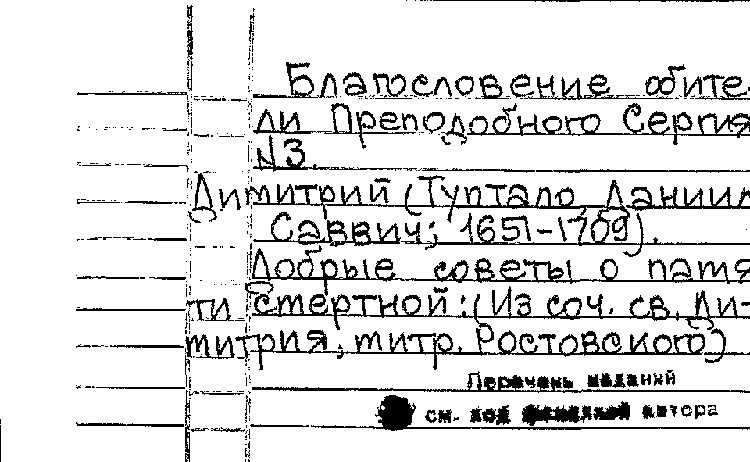 Благословение обите-
ли Преподобного Сергия
N3.
Димитрий (Туптало, Даниил
Саввич; 1651-1709).
Добрые советы о памя
ти смертной: (Из соч. св. Ди-
митрия, митр. Ростовского)
Перечень изданий
см. под фамилией автора